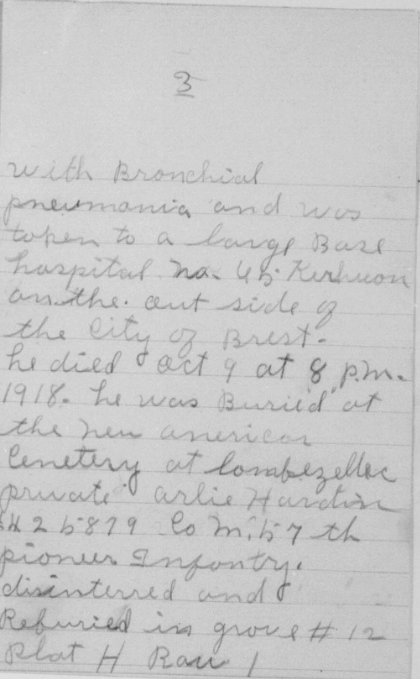 3
with Bronchial
pneumonia and was
topen to a large Base
hospital no. 65 Kerhuon
on the out side of
the City of Brest.
he died Oct 9 at 8 p.m.
1918. he was Buried at
the new american
Cenetery at Lambezellec
private arlie Hardin
425879 Co M. 57th
pioneer Infantry.
disinterred and
Reburied in grove # 12
Plat H Row 1